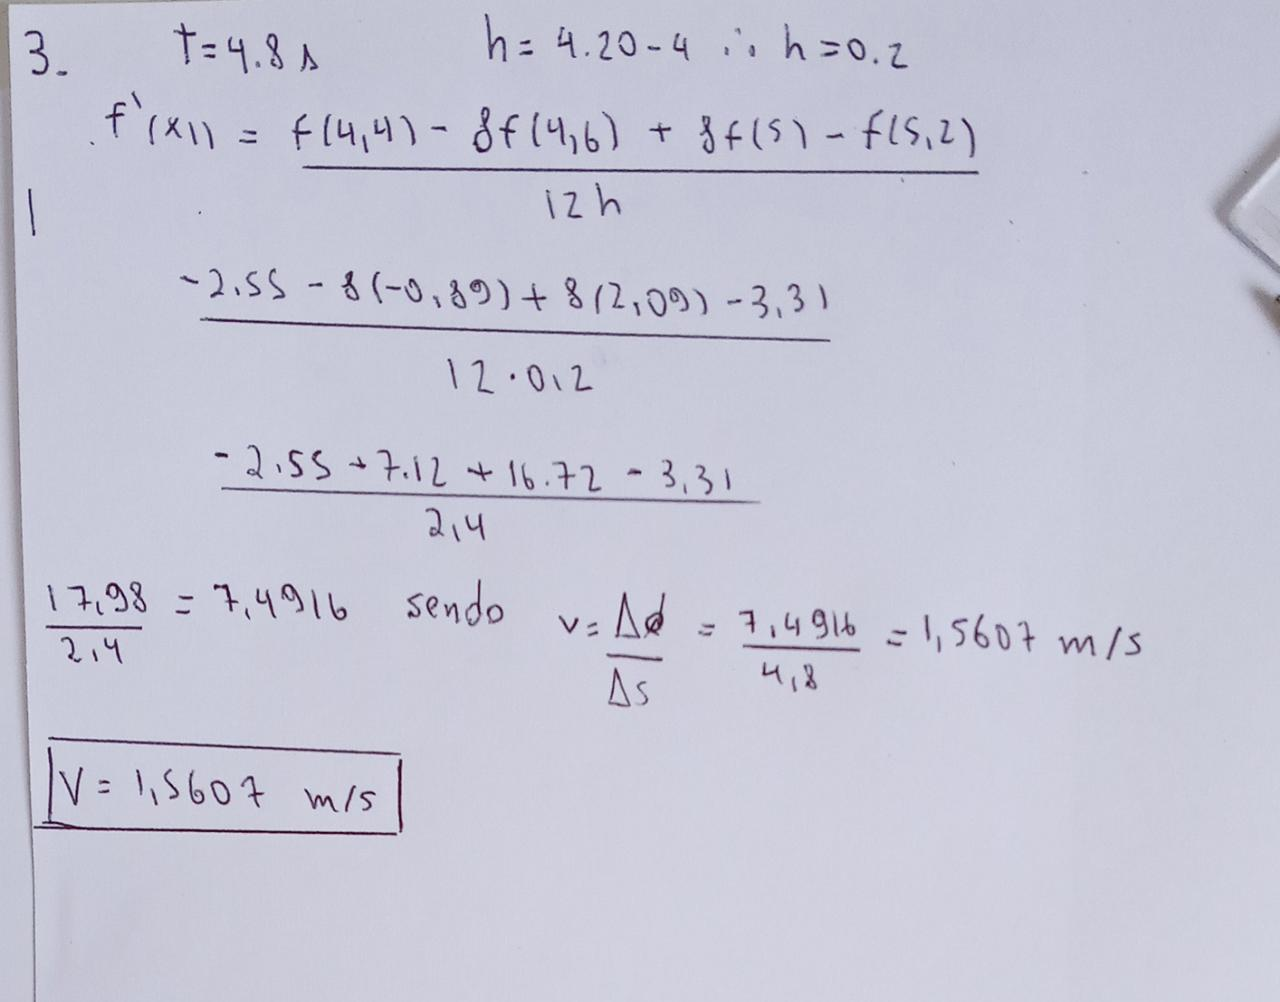 3. t=4.8 s h= 4.20-4 ∴ h=0.2
f'(x1) = f(4,4) - 8f(4,6) + 8f(5) - f(5,2)
12h
-2.55 - 8(-0,89) + 8(2,09) - 3,31
12·0,2
-2.55 + 7.12 + 16.72 - 3,31
2,4
17,98 = 7,4916 sendo v= Δd = 7,4916 = 1,5607 m/s
2,4 Δs 4,8
V = 1,5607 m/s